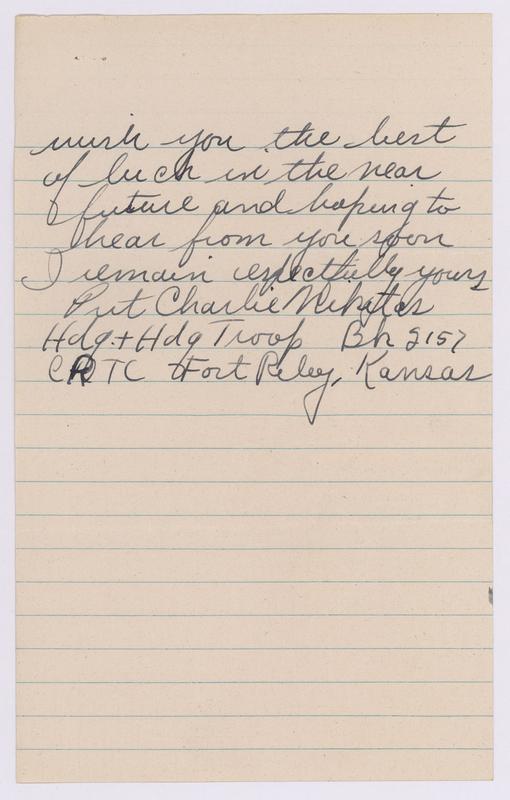 wish you the best
of luck in the near
future and hoping to
hear from you soon
I remain respectfully yours
Pvt Charlie Nikitas
Hdq. + Hdq Troop Bk 2157
CRTC Fort Riley, Kansas